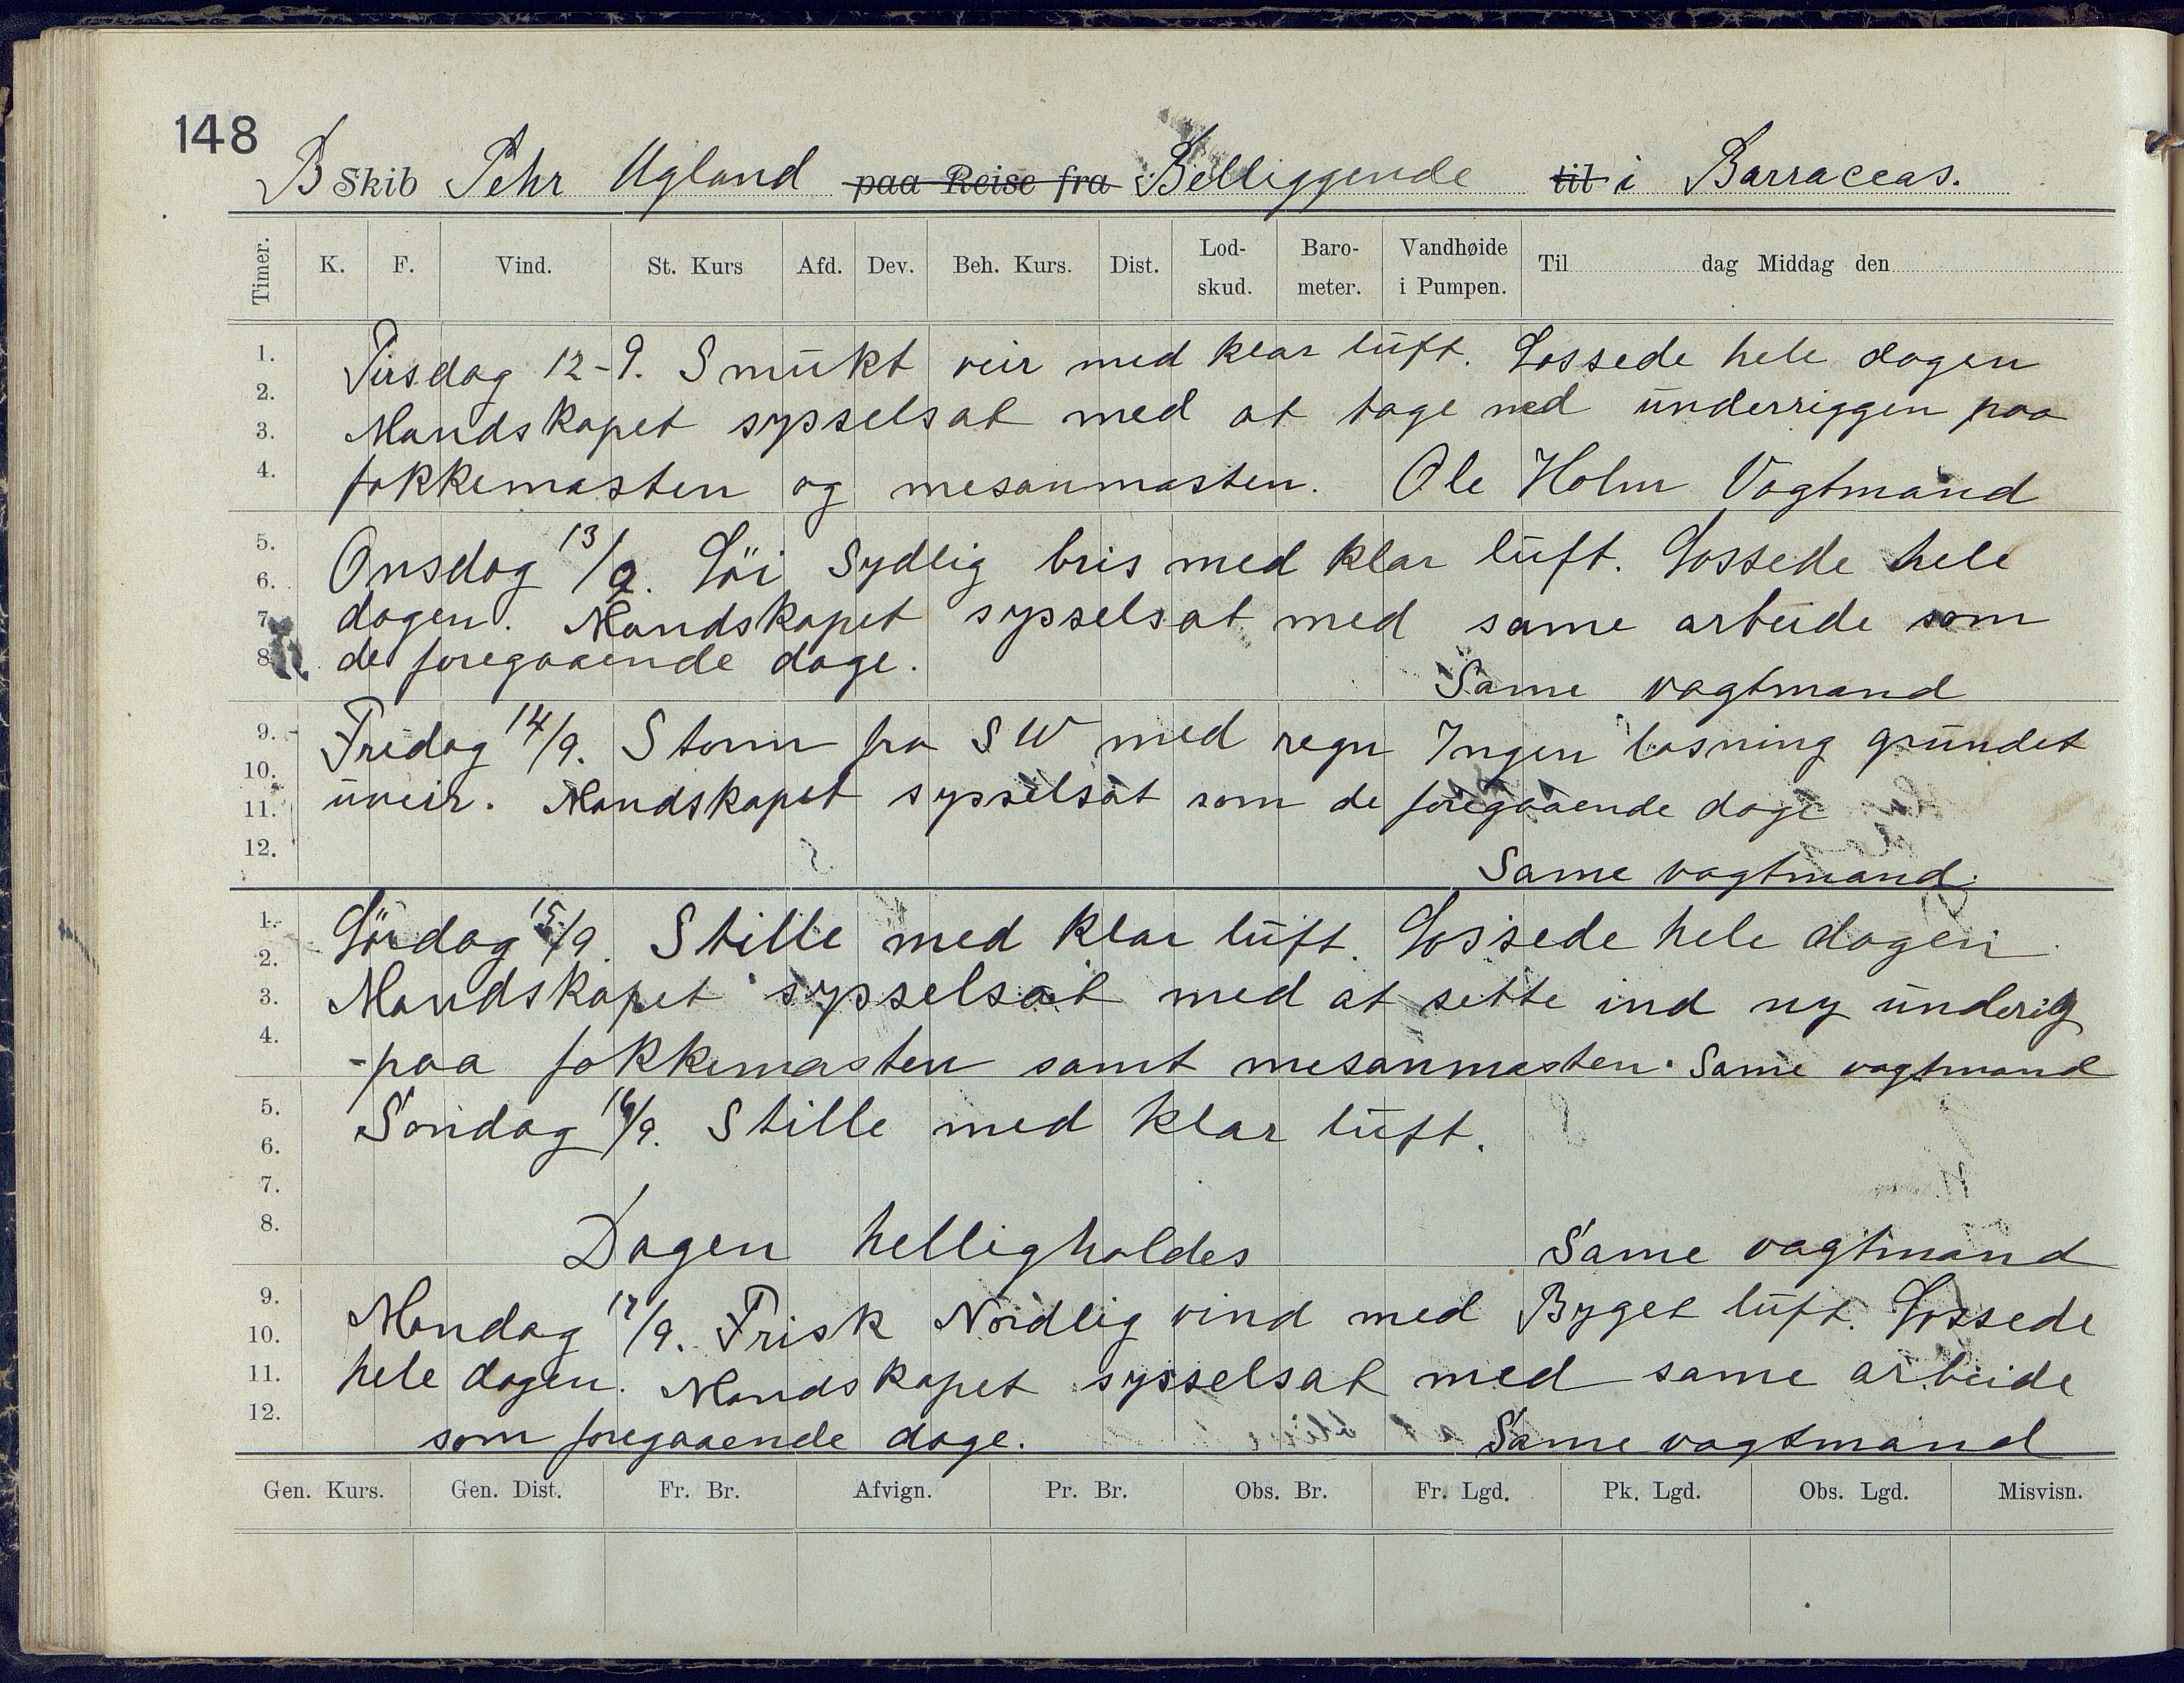 148
B Skib Pehr Ugland paa Reise fra Belliggende til i Barraccas.
Timer. K. F. Vind. St. Kurs Afd. Dev. Beh. Kurs. Dist. Lod-skud. Baro-meter. Vandhøide i Pumpen. Til dag Middag den
1. Tirsdag 12-9. Smukt veir med klar luft. Lossede hele dagen
2.
3. Mandskapet sysselsat med at tage ned underriggen paa
4. fokkemasten og mesanmasten. Ole Holm Vagtmand
5. Onsdag 13/9. Löi Sydlig bris med klar luft. Lossede hele
6.
7. dagen. Mandskapet sysselsat med same arbeide som
8. de foregaaende dage.
Same vagtmand
9. Fredag 14/9. Storm fra SW med regn Ingen losning grundet
10.
11. uveir. Mandskapet sysselsat som de foregaaende dage
12. Same vagtmand.
1. Lördag 15/9. Stille med klar luft. Lossede hele dagen
2.
3. Mandskapet sysselsat med at sette ind ny underig
4. -paa fokkemasten samt mesanmasten. Same vagtmand
5. Søndag 16/9. Stille med klar luft.
6.
7.
8. Dagen helligholdes Same vagtmand
9. Mandag 17/9. Frisk Nordlig vind med Byget luft. Lossede
10.
11. hele dagen. Mandskapet sysselsat med same arbeide
12. som foregaaende dage. Same vagtmand
Gen. Kurs. Gen. Dist. Fr. Br. Afvign. Pr. Br. Obs. Br. Fr. Lgd. Pk. Lgd. Obs. Lgd. Misvisn.